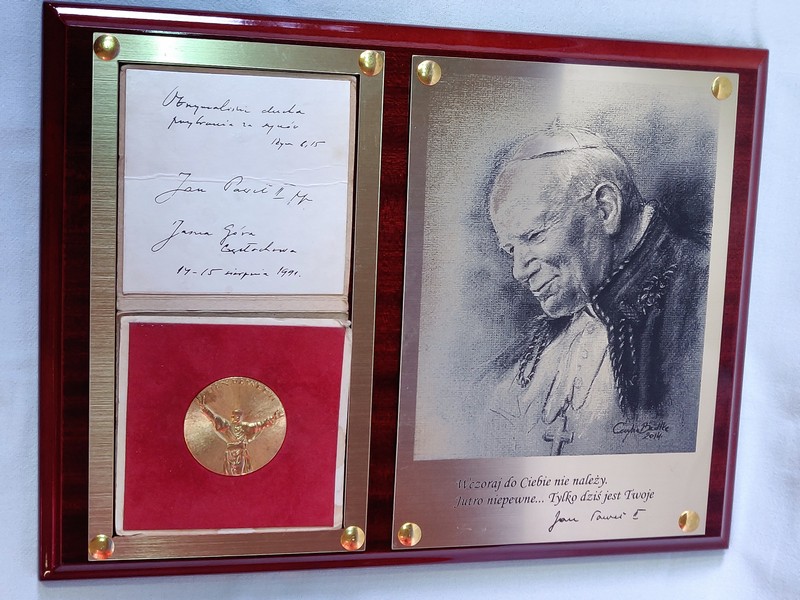 Otrzymaliście ducha
przybrania za synów
Rzym 8,15
Jan Paweł II pp
Jasna Góra
Częstochowa
14-15 sierpnia 1991.
Wczoraj do Ciebie nie należy.
Jutro niepewne... Tylko dziś jest Twoje
Jan Paweł II
2014